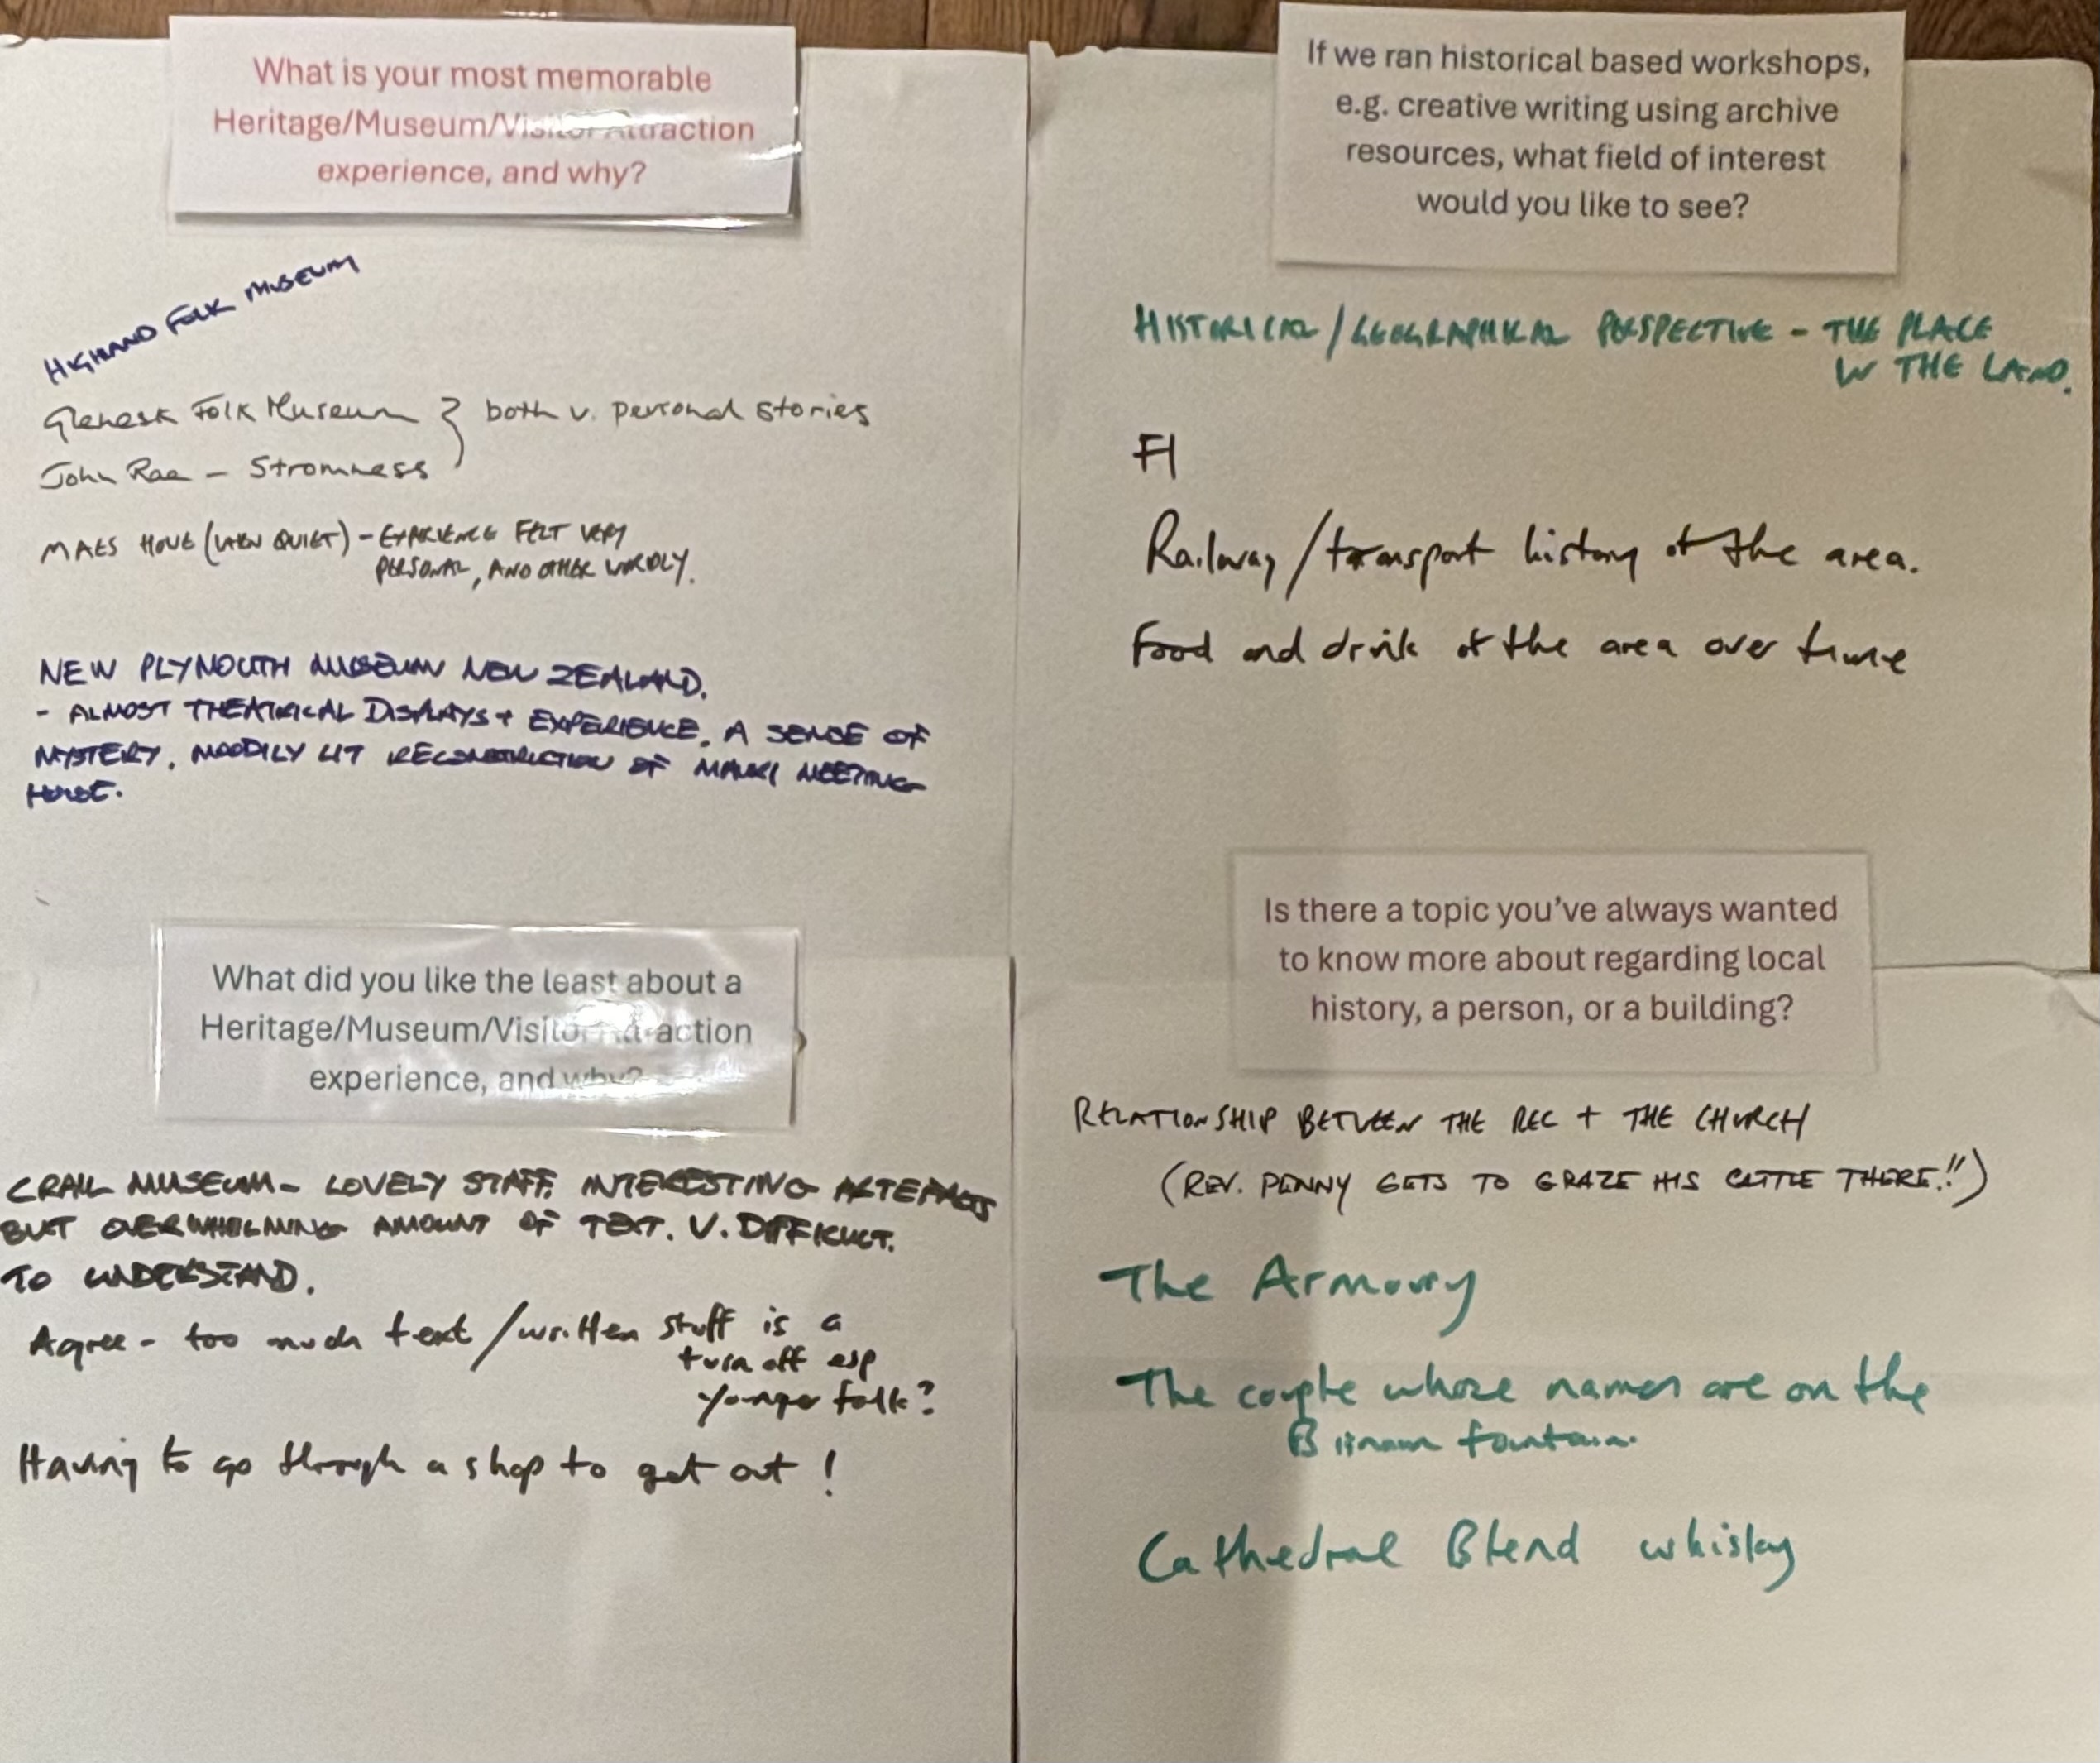 What is your most memorable
Heritage/Museum/Visitor Attraction
experience, and why?
HIGHLAND FOLK MUSEUM
Glenesk Folk Museum } both v. personal stories
John Rae - Stromness
MAES HOWE (WHEN QUIET) - EXPERIENCE FELT VERY
PERSONAL, AND OTHER WORDLY.
NEW PLYMOUTH MUSEUM NEW ZEALAND.
- ALMOST THEATRICAL DISPLAYS + EXPERIENCE. A SENSE OF
MYSTERY. MOODILY LIT RECONSTRUCTION OF MAORI MEETING
HOUSE.
What did you like the least about a
Heritage/Museum/Visitor Attraction
experience, and why?
CRAIL MUSEUM - LOVELY STAFF. INTERESTING ARTEFACTS
BUT OVERWHELMING AMOUNT OF TEXT. V. DIFFICULT.
TO UNDERSTAND.
Agree - too much text/written stuff is a
turn off esp
younger folk?
Having to go through a shop to get out!
If we ran historical based workshops,
e.g. creative writing using archive
resources, what field of interest
would you like to see?
HISTORICAL/GEOGRAPHICAL PERSPECTIVE - THE PLACE
IN THE LAND.
Fl
Railway/transport history of the area.
Food and drink of the area over time
Is there a topic you've always wanted
to know more about regarding local
history, a person, or a building?
RELATIONSHIP BETWEEN THE REC + THE CHURCH
(REV. PENNY GETS TO GRAZE HIS CATTLE THERE!!)
The Armoury
The couple whose names are on the
Birnam fountain.
Cathedral Blend whisky